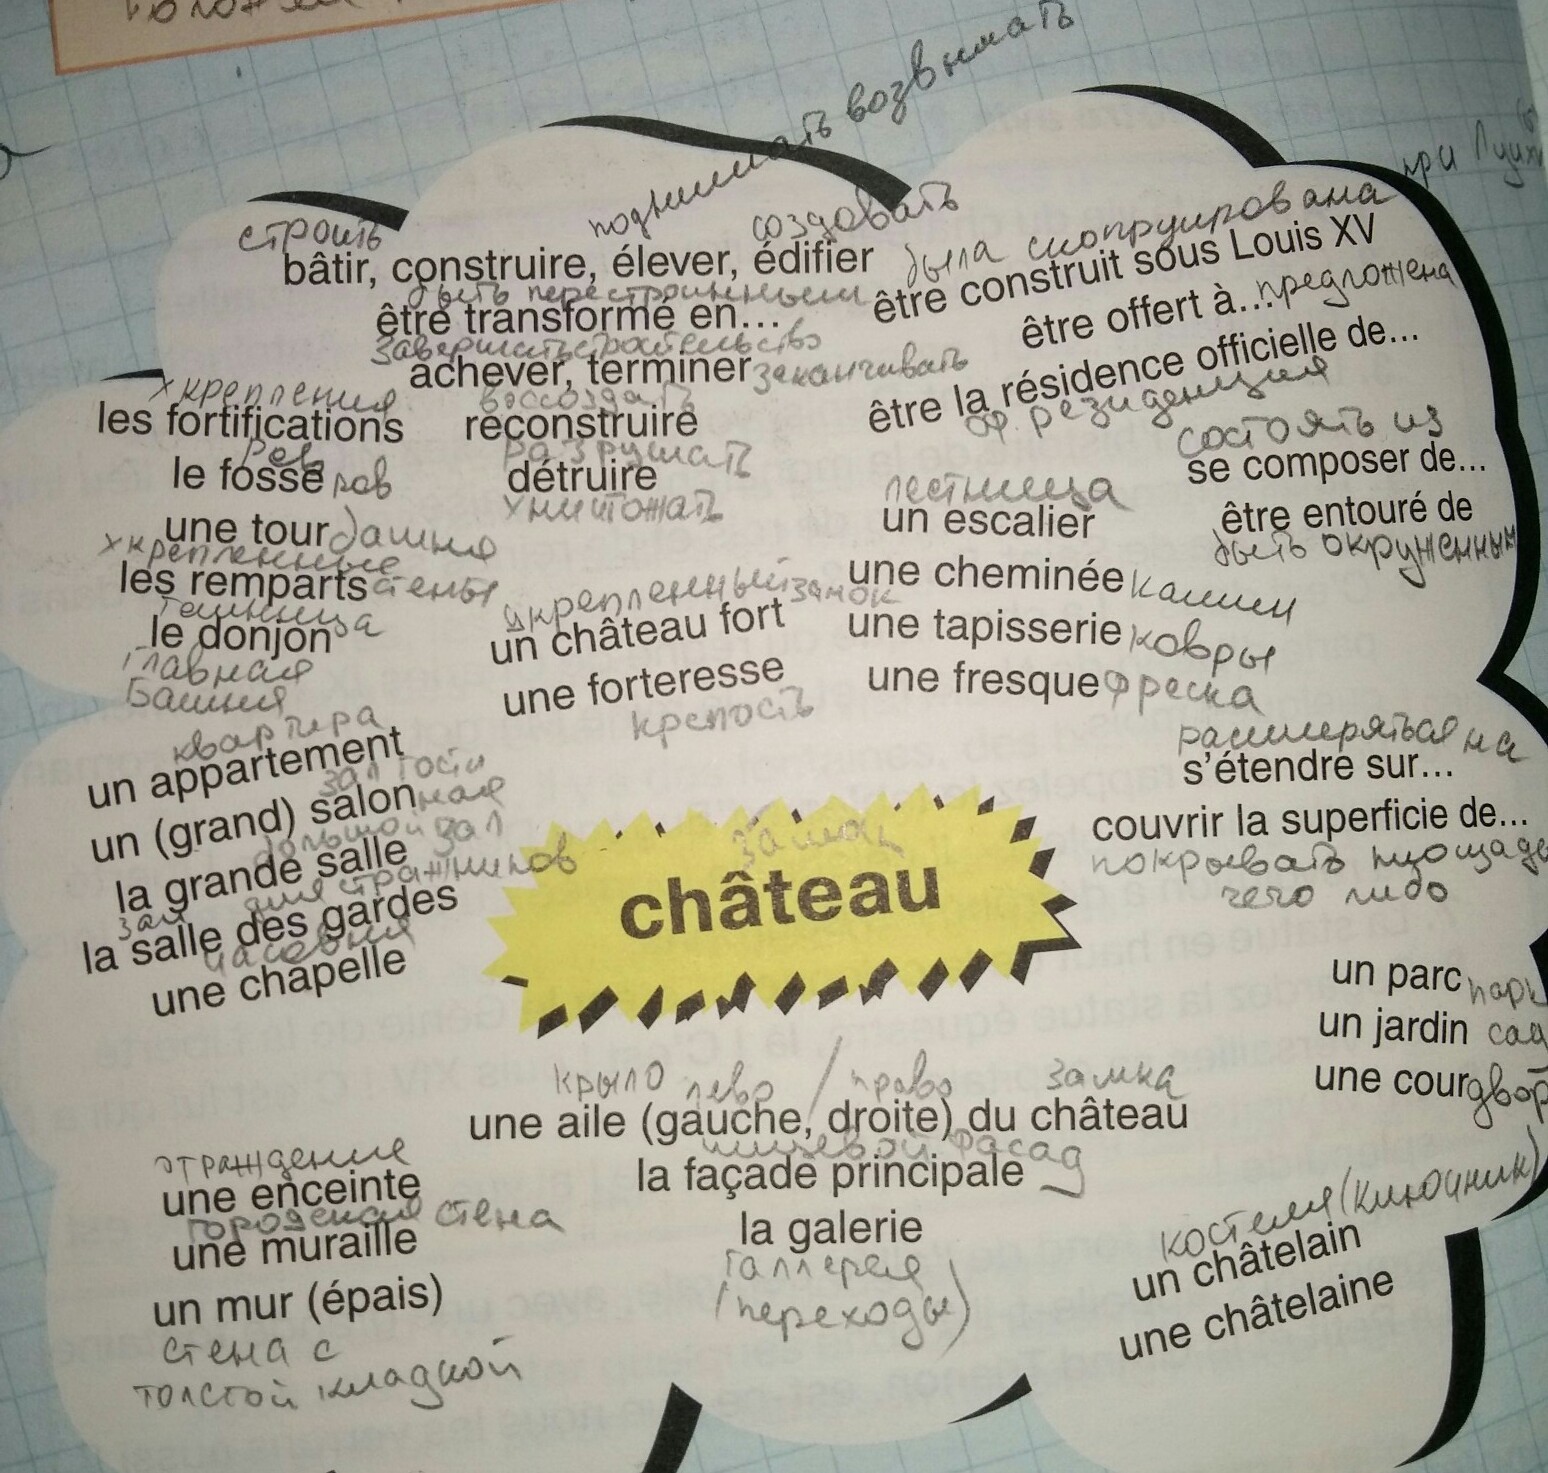 поднимать возвымать
строить
создовать
bâtir, construire, élever, édifier
была сконструирована при Луи
être construit sous Louis XV
быть перестроинным
être transformé en...
être offert à... предложена
завершать строительство
achever, terminer заканчивать
être la résidence officielle de...
оф. резиденция
укрепления
les fortifications
воссоздать
reconstruire
ров
le fossé ров
разрушать
détruire
уничтожать
состоять из
se composer de...
une tour башня
лестница
un escalier
être entouré de
быть окруженным
укрепленные
les remparts стены
une cheminée камин
темница
le donjon
главная
башня
укрепленный замок
un château fort
une tapisserie ковры
une forteresse
крепость
une fresque фреска
квартира
un appartement
зал гости
un (grand) salon ная
большой зал
la grande salle
зал для стражников
la salle des gardes
часовня
une chapelle
расширяться на
s'étendre sur...
couvrir la superficie de...
покрывать площадь
чего либо
замок
château
un parc парк
un jardin сад
une cour двор
крыло лево / право замка
une aile (gauche, droite) du château
лицевой фасад
la façade principale
la galerie
галлерея
(переходы)
ограждение
une enceinte
городская стена
une muraille
un mur (épais)
стена с
толстой кладкой
костелян (ключник)
un châtelain
une châtelaine